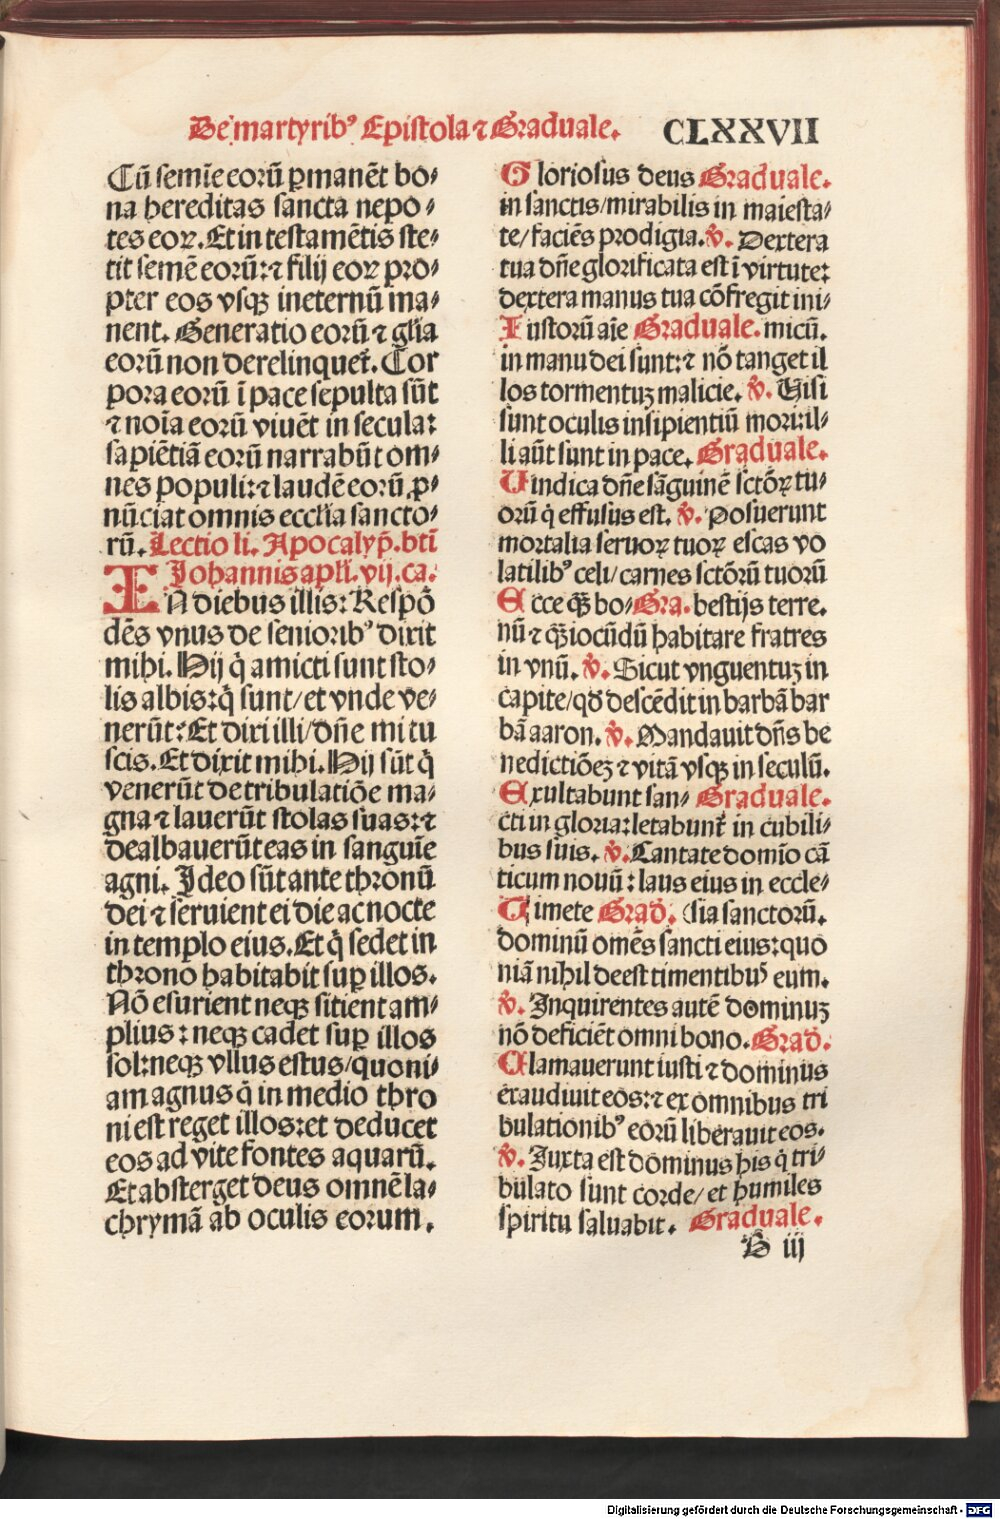 De martyribꝰ Epistola ⁊ Graduale. CLXXVII
Cū semīe eorū ꝑmanēt bo⸗
na hereditas sancta nepo⸗
tes eoꝝ. Et in testamētis ste⸗
tit semē eorū: ⁊ filij eoꝝ pro⸗
pter eos vsqꝫ ineternū ma⸗
nent. Generatio eorū ⁊ glīa
eorū non derelinquet᷑. Cor
pora eorū ī pace sepulta sūt
⁊ noīa eorū viuēt in secula:
sapiētiā eorū narrabūt om⸗
nes populi: ⁊ laudē eorū ꝓ⸗
nūciat omnis ecclīa sancto⸗
rū. Lectio li. Apocalyp̄. btī
Johannis apłi. vij. ca.
IN diebus illis: Respō
dēs vnus de senioribꝰ dixit
mihi. Hij q̄ amicti sunt sto⸗
lis albis: q̄ sunt/ et vnde ve⸗
nerūt: Et dixi illi/ dn̄e mi tu
scis. Et dixit mihi. Hij sūt q̄
venerūt de tribulatiōe ma⸗
gna ⁊ lauerūt stolas suas: ⁊
dealbauerūt eas in sanguīe
agni. Ideo sūt ante thronū
dei ⁊ seruient ei die ac nocte
in templo eius. Et q̄ sedet in
throno habitabit suꝑ illos.
Nō esurient neqꝫ sitient am⸗
plius: neqꝫ cadet suꝑ illos
sol: neqꝫ vllus estus/ quoni⸗
am agnus q̄ in medio thro
ni est reget illos: et deducet
eos ad vite fontes aquarū.
Et absterget deus omnē la⸗
chrymā ab oculis eorum.
Gloriosus deus Graduale.
in sanctis/ mirabilis in maiesta⸗
te/ faciēs prodigia. ℣. Dextera
tua dn̄e glorificata est ī virtute:
dextera manus tua cōfregit ini⸗
Iustorū aīe Graduale. micū.
in manu dei sunt: ⁊ nō tanget il
los tormentuꝫ malicie. ℣. Uisi
sunt oculis insipientiū mori: il⸗
li aūt sunt in pace. Graduale.
Uindica dn̄e sāguinē sctōꝝ tu⸗
orū q̄ effusus est. ℣. Posuerunt
mortalia seruoꝝ tuoꝝ escas vo
latilibꝰ celi/ carnes sctōrū tuorū
Ecce qꝫ̄ bo⸗ Gra. bestijs terre.
nū ⁊ qꝫ̄ iocūdū habitare fratres
in vnū. ℣. Sicut vnguentuꝫ in
capite/ qd̄ descēdit in barbā bar
bā aaron. ℣. Mandauit dn̄s be
nedictiōeꝫ ⁊ vitā vsqꝫ in seculū.
Exultabunt san⸗ Graduale.
cti in gloria: letabunt᷑ in cubili⸗
bus suis. ℣. Cantate domīo cā
ticum nouū: laus eius in eccle⸗
Timete Grad̄. (sia sanctorū.
dominū omēs sancti eius: quo
niā nihil deest timentibꝰ eum.
℣. Inquirentes autē dominuꝫ
nō deficiēt omni bono. Grad̄.
Clamauerunt iusti ⁊ dominus
exaudiuit eos: ⁊ ex omnibus tri
bulationibꝰ eorū liberauit eos.
℣. Juxta est dominus his q̄ tri⸗
bulato sunt corde/ et humiles
spiritu saluabit. Graduale.
H iij
Digitalisierung gefördert durch die Deutsche Forschungsgemeinschaft - DFG